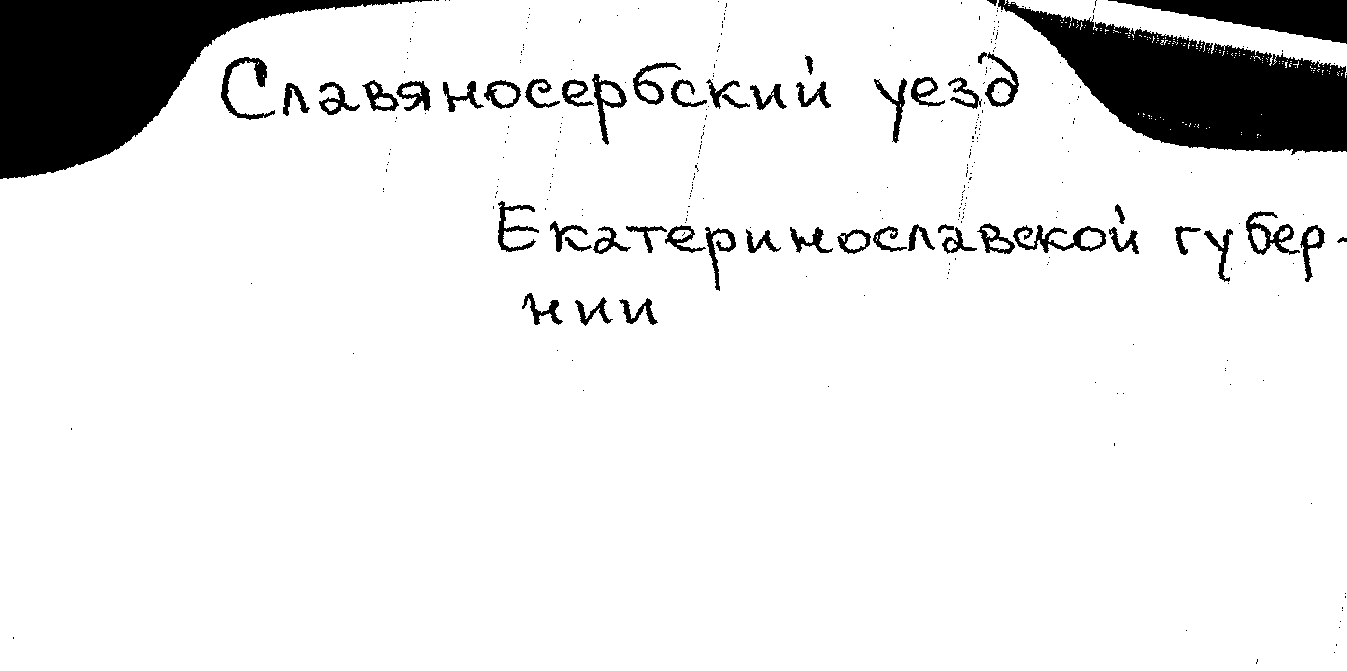 Славяносербский уезд
Екатеринославской губер-
нии